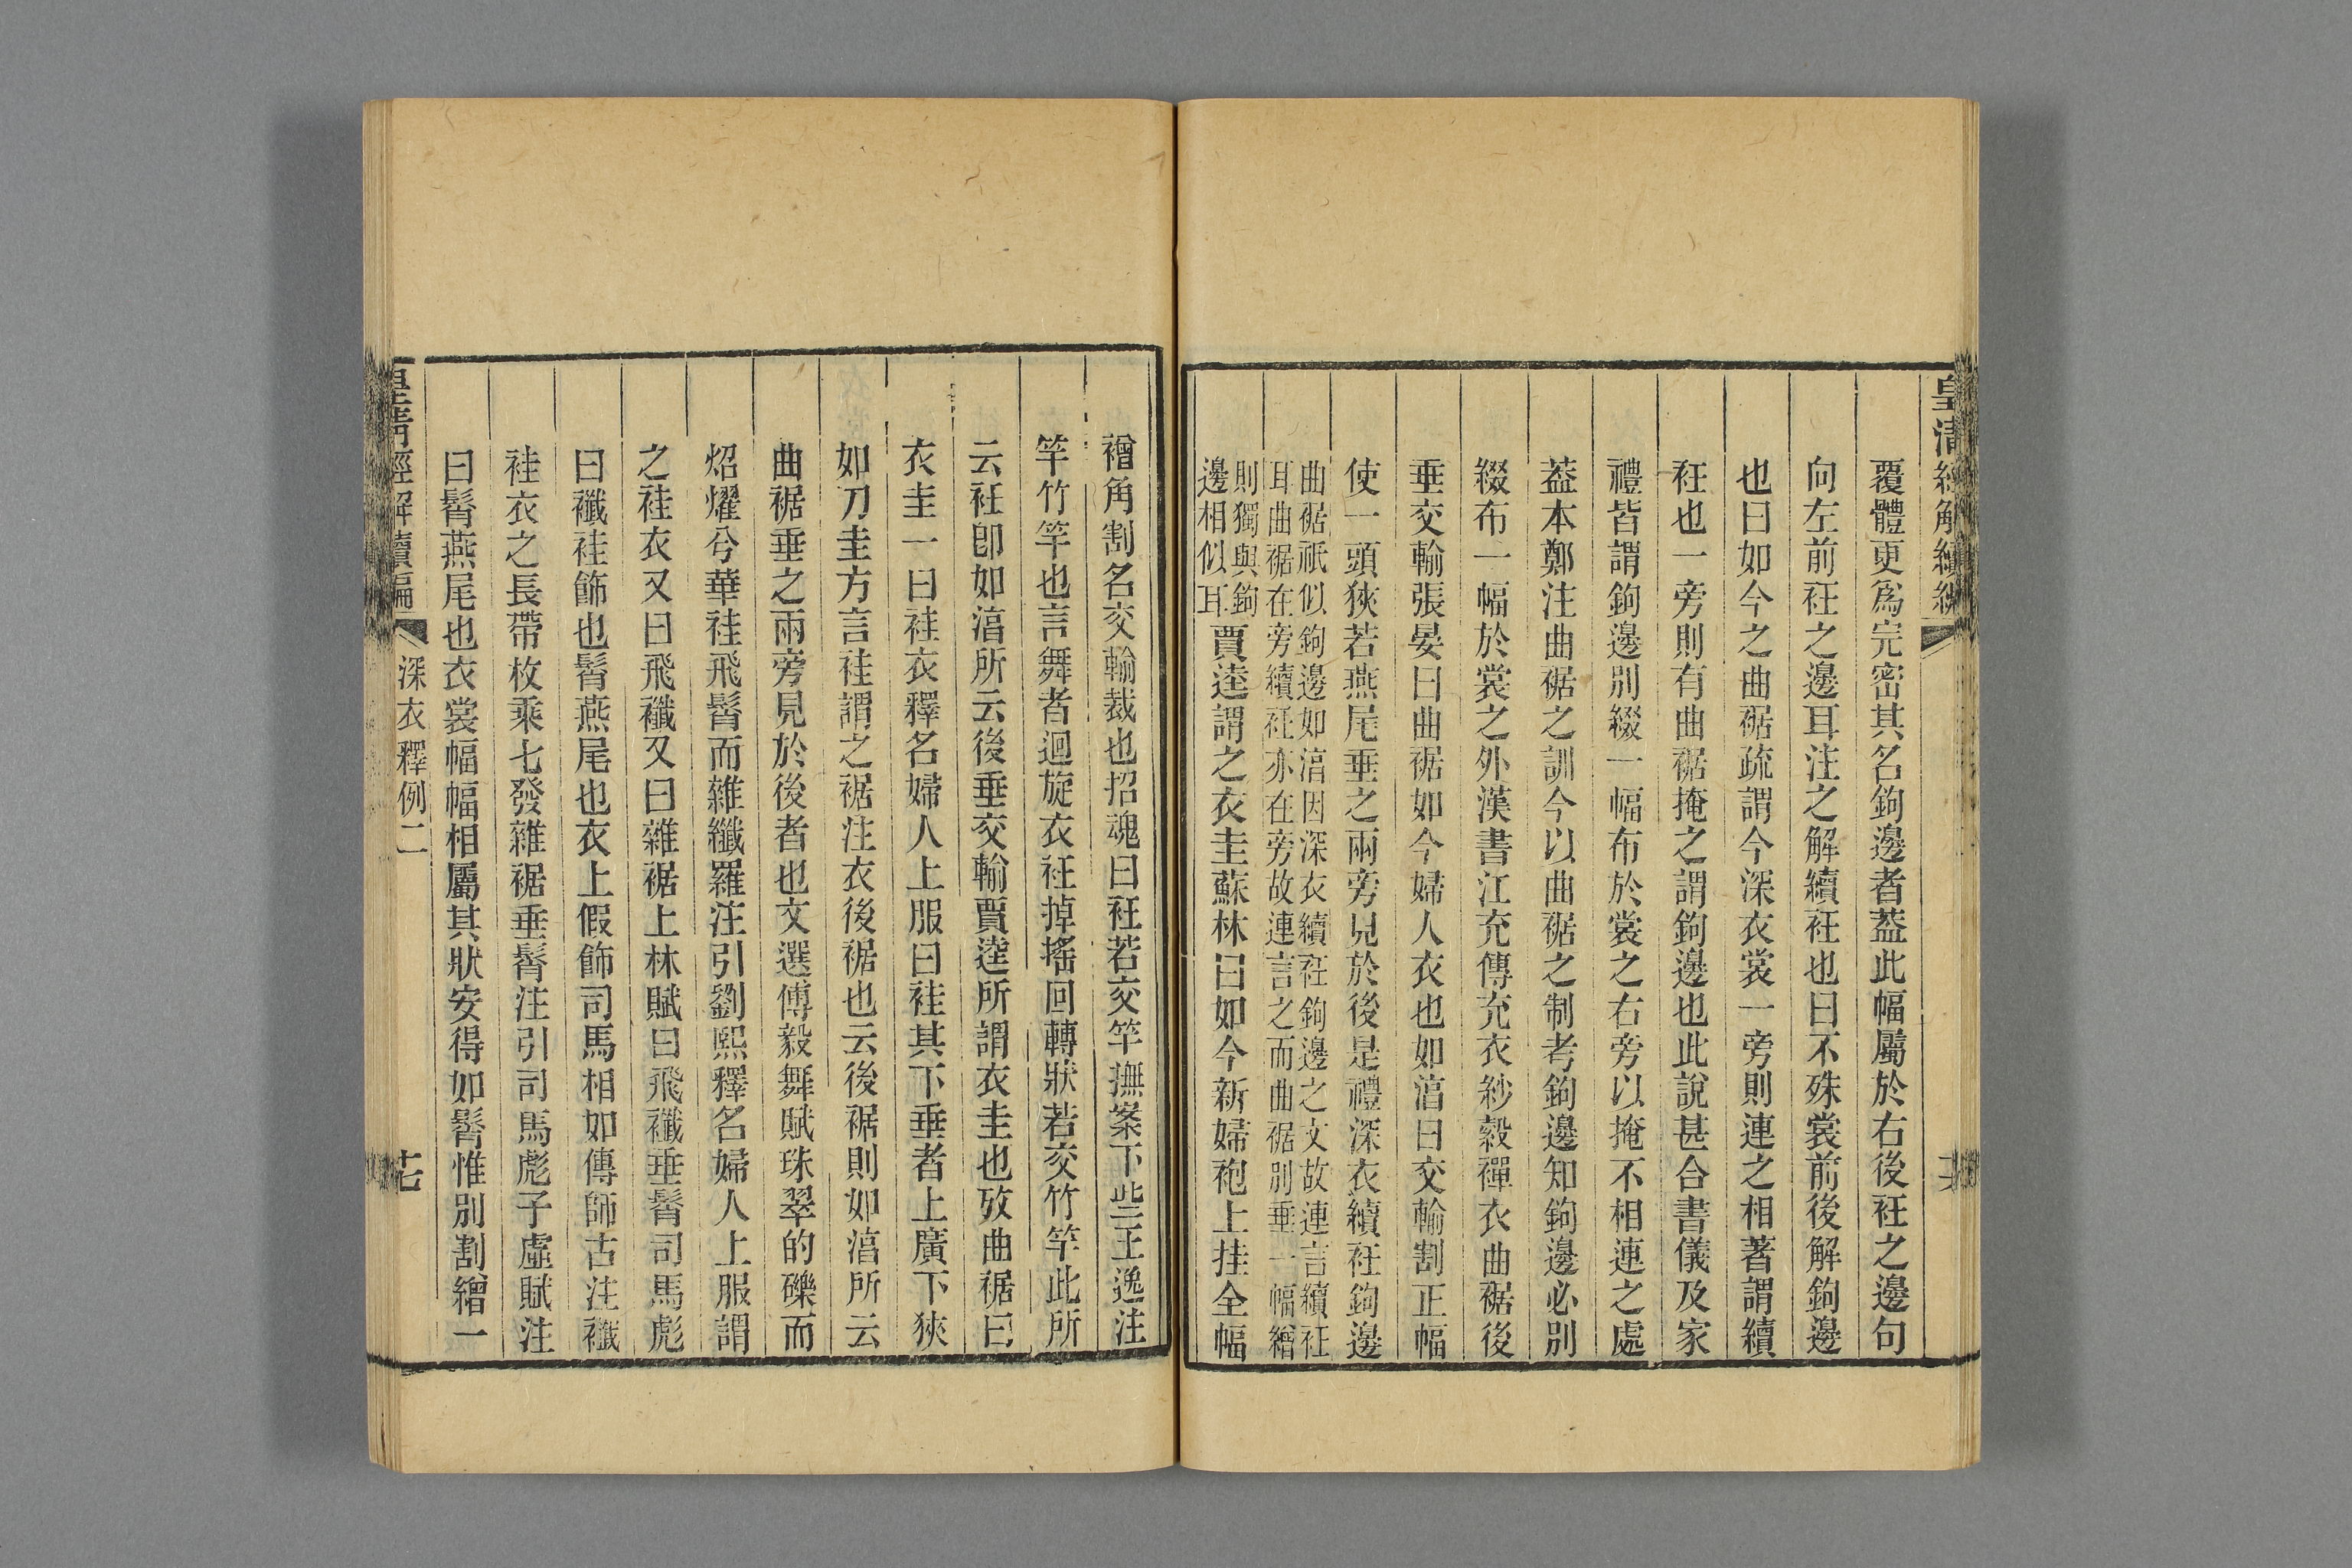 皇清經解續編
覆體更爲完密其名鉤邊者葢此幅屬於右後衽之邊句
向左前衽之邊耳注之解續衽也曰不殊裳前後解鉤邊
也曰如今之曲裾疏謂今深衣裳一旁則連之相著謂續
衽也一旁則有曲裾掩之謂鉤邊也此說甚合書儀及家
禮皆謂鉤邊別綴一幅布於裳之右旁以掩不相連之處
葢本鄭注曲裾之訓今以曲裾之制考鉤邊知鉤邊必別
綴布一幅於裳之外漢書江充傳充衣紗縠襌衣曲裾後
垂交輸張晏曰曲裾如今婦人衣也如湻曰交輸割正幅
使一頭狹若燕尾垂之兩旁見於後是禮深衣續衽鉤邊
曲裾祇似鉤邊如湻因深衣續衽鉤邊之文故連言續衽
耳曲裾在旁續衽亦在旁故連言之而曲裾別垂一幅繒
則獨與鉤
邊相似耳賈逵謂之衣圭蘇林曰如今新婦袍上挂全幅
繒角割名交輸裁也招魂曰衽若交竿撫案下些王逸注
竿竹竿也言舞者迴旋衣衽掉搖回轉狀若交竹竿此所
云衽卽如湻所云後垂交輸賈逵所謂衣圭也攷曲裾曰
衣圭一曰袿衣釋名婦人上服曰袿其下垂者上廣下狹
如刀圭方言袿謂之裾注衣後裾也云後裾則如湻所云
曲裾垂之兩旁見於後者也文選傅毅舞賦珠翠的礫而
炤燿兮華袿飛髾而雜纖羅注引劉熙釋名婦人上服謂
之袿衣又曰飛襳又曰雜裾上林賦曰飛襳垂髾司馬彪
曰襳袿飾也髾燕尾也衣上假飾司馬相如傳師古注襳
袿衣之長帶枚乘七發雜裾垂髾注引司馬彪子虛賦注
曰髾燕尾也衣裳幅幅相屬其狀安得如髾惟別割繒一
皇清經解續編
深衣釋例二
十七